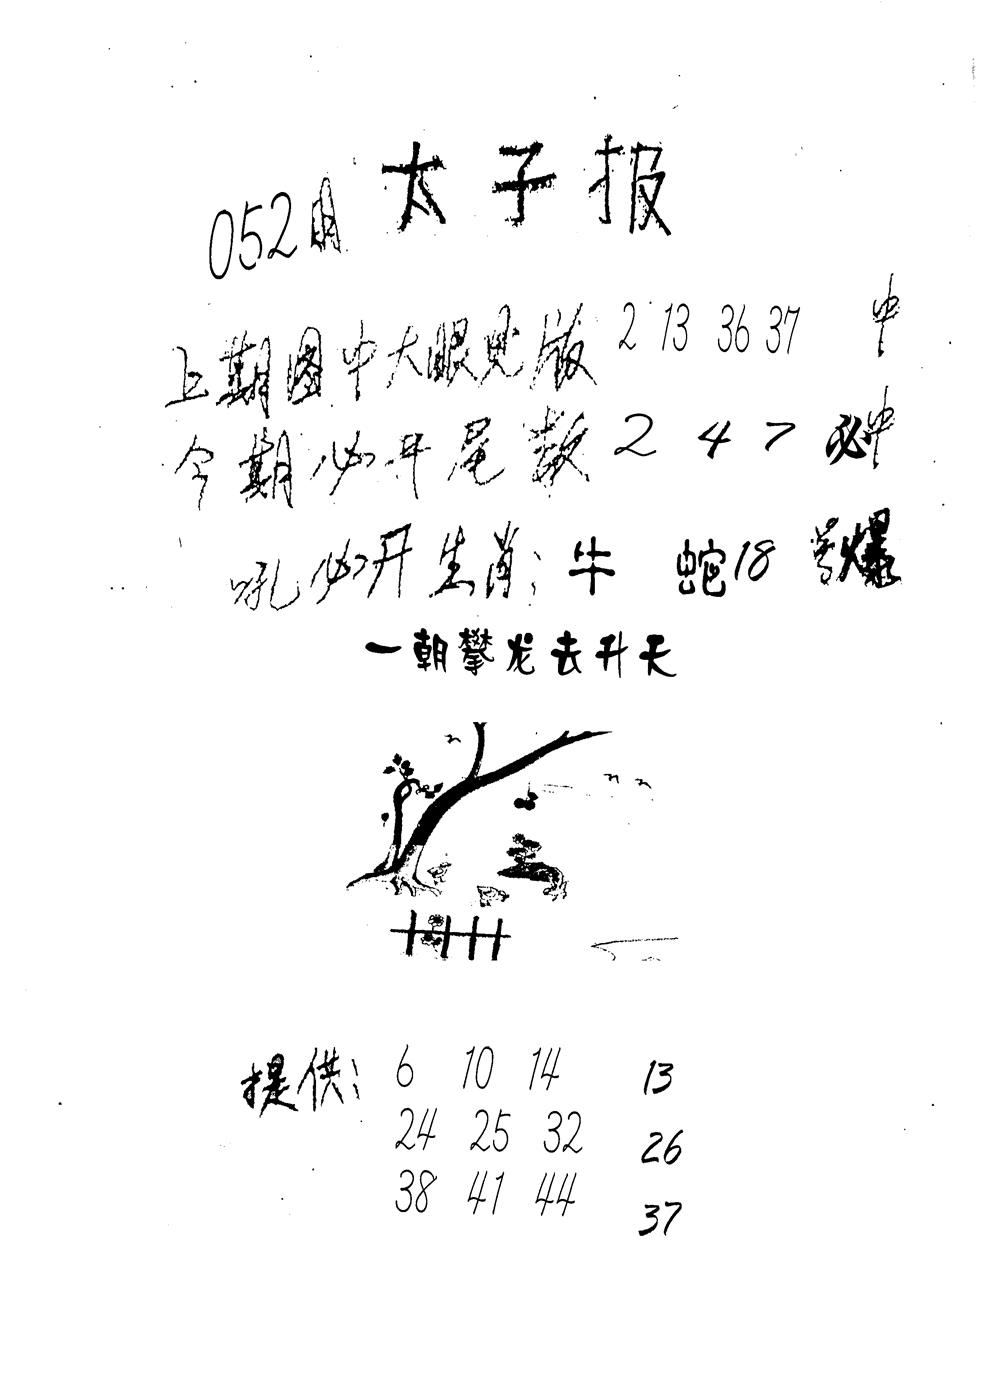 太子报
052期
上期图中大眼见版 2 13 36 37 中
今期必开尾数 2 4 7 必中
吼必开生肖: 牛 蛇 18 号爆
一朝攀龙去升天
提供: 6 10 14 13
24 25 32 26
38 41 44 37